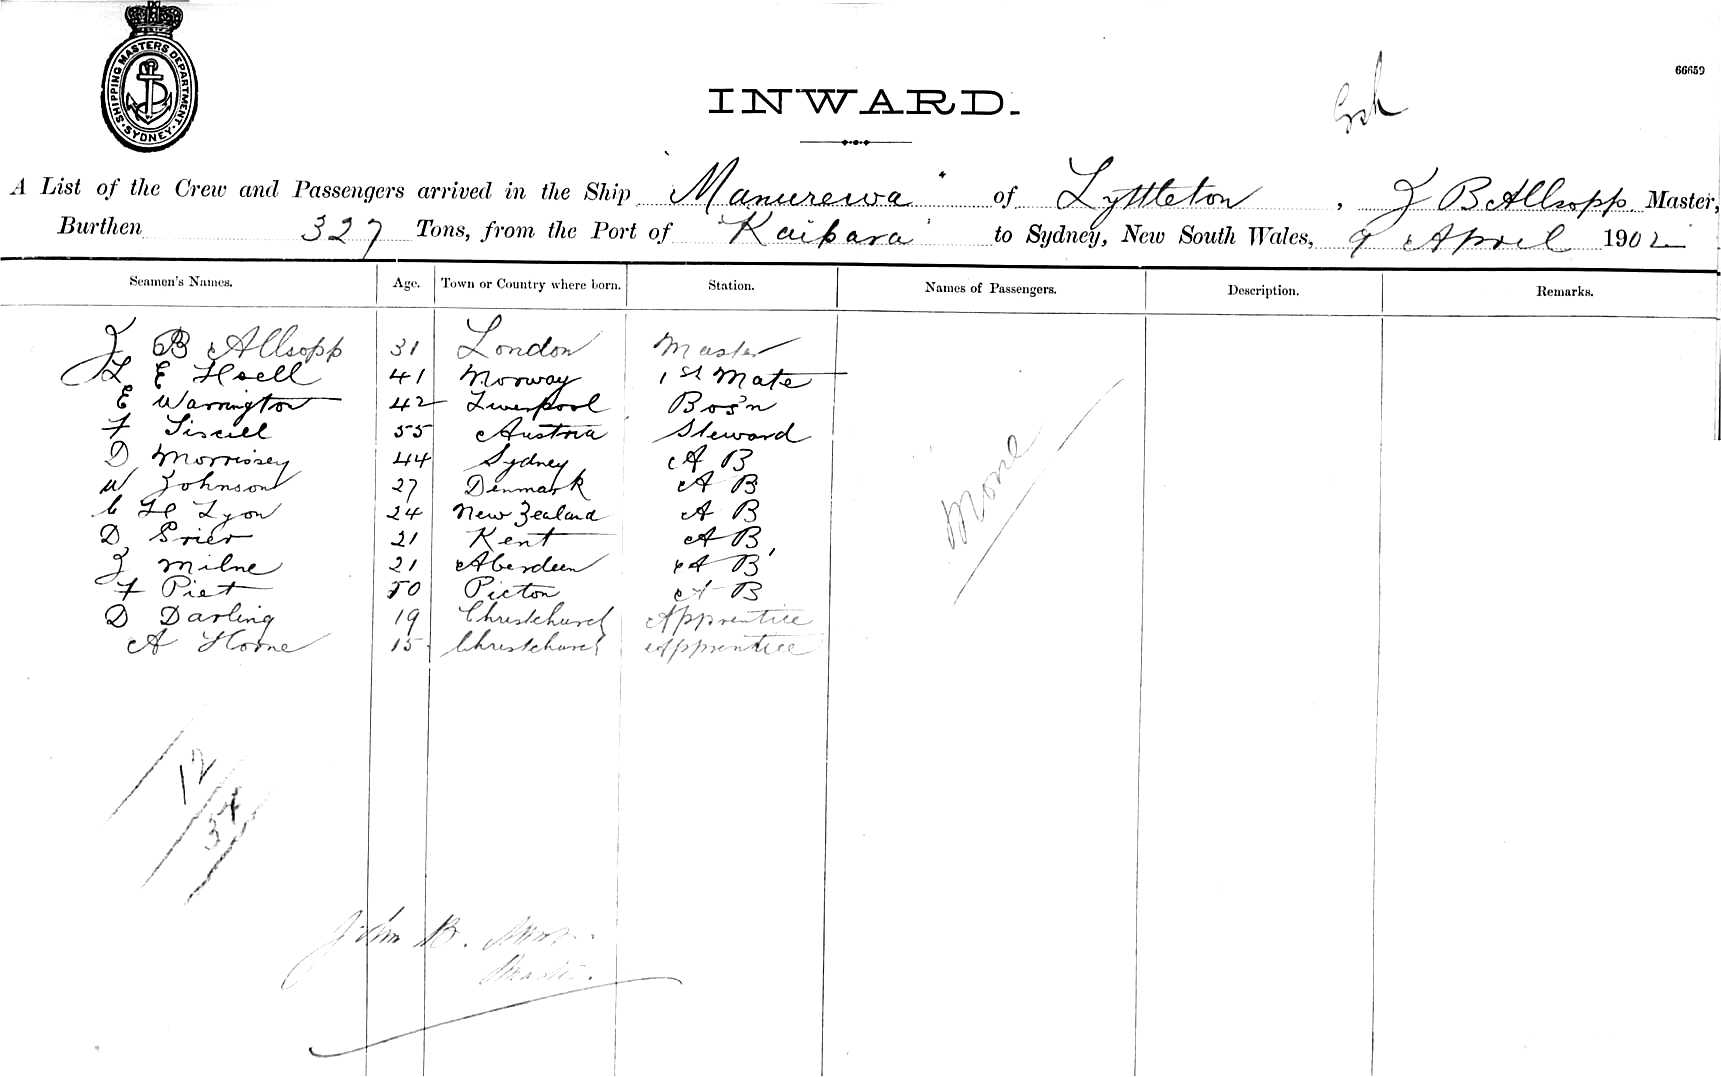 SHIPPING MASTERS DEPARTMENT. SYDNEY.
66659
INWARD.
A List of the Crew and Passengers arrived in the Ship "Manurewa" of Lyttleton, J B Allsopp Master,
Burthen 327 Tons, from the Port of Kaipara to Sydney, New South Wales, 9 April 1902
Seamen's Names. Age. Town or Country where born. Station. Names of Passengers. Description. Remarks.
J B Allsopp 31 London Master
41 Norway 1st Mate
E Warrington 42 Liverpool Bos'n
F 55 Austria Steward
D Morrissey 44 Sydney A B
W Johnson 27 Denmark A B
C H Lyon 24 New Zealand A B
D 21 Kent A B
J Milne 21 Aberdeen A B
F Piet 50 Picton A B
D Darling 19 Christchurch Apprentice
A 15 Christchurch Apprentice
None
12
34
John B.
Master.